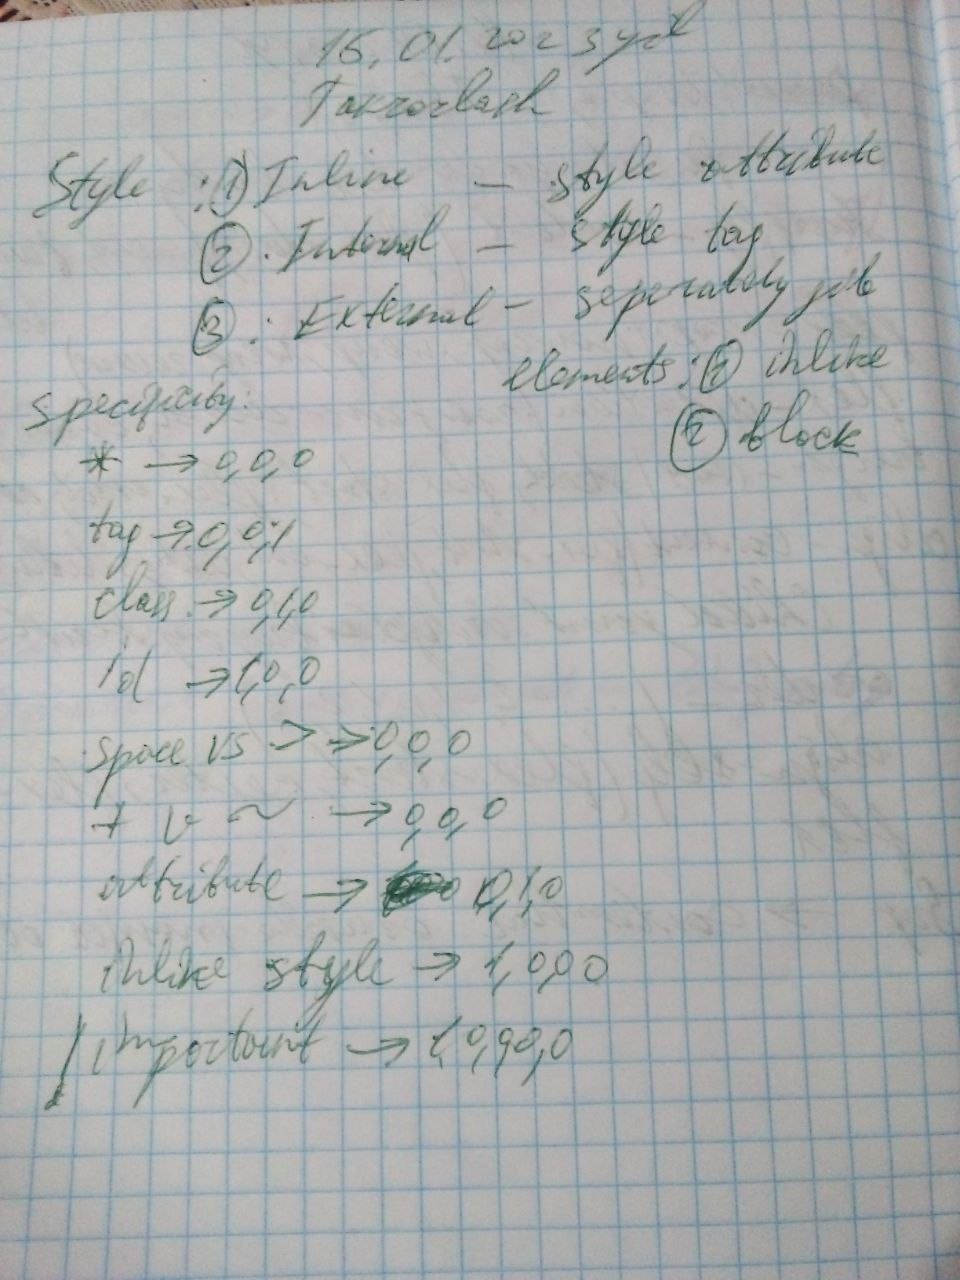 15.01.2023 yil
Takrorlash
Style : ① Inline — style attribute
② . Internal — style tag
③ : External — seperately file
elements : ① inline
② block
Specificity:
* → 0,0,0
tag → 0,0,1
class → 0,1,0
id → 1,0,0
Space vs > → 0,0,0
+ v ~ → 0,0,0
attribute → 0,1,0
inline style → 1,0,0,0
! important → 1,0,0,0,0